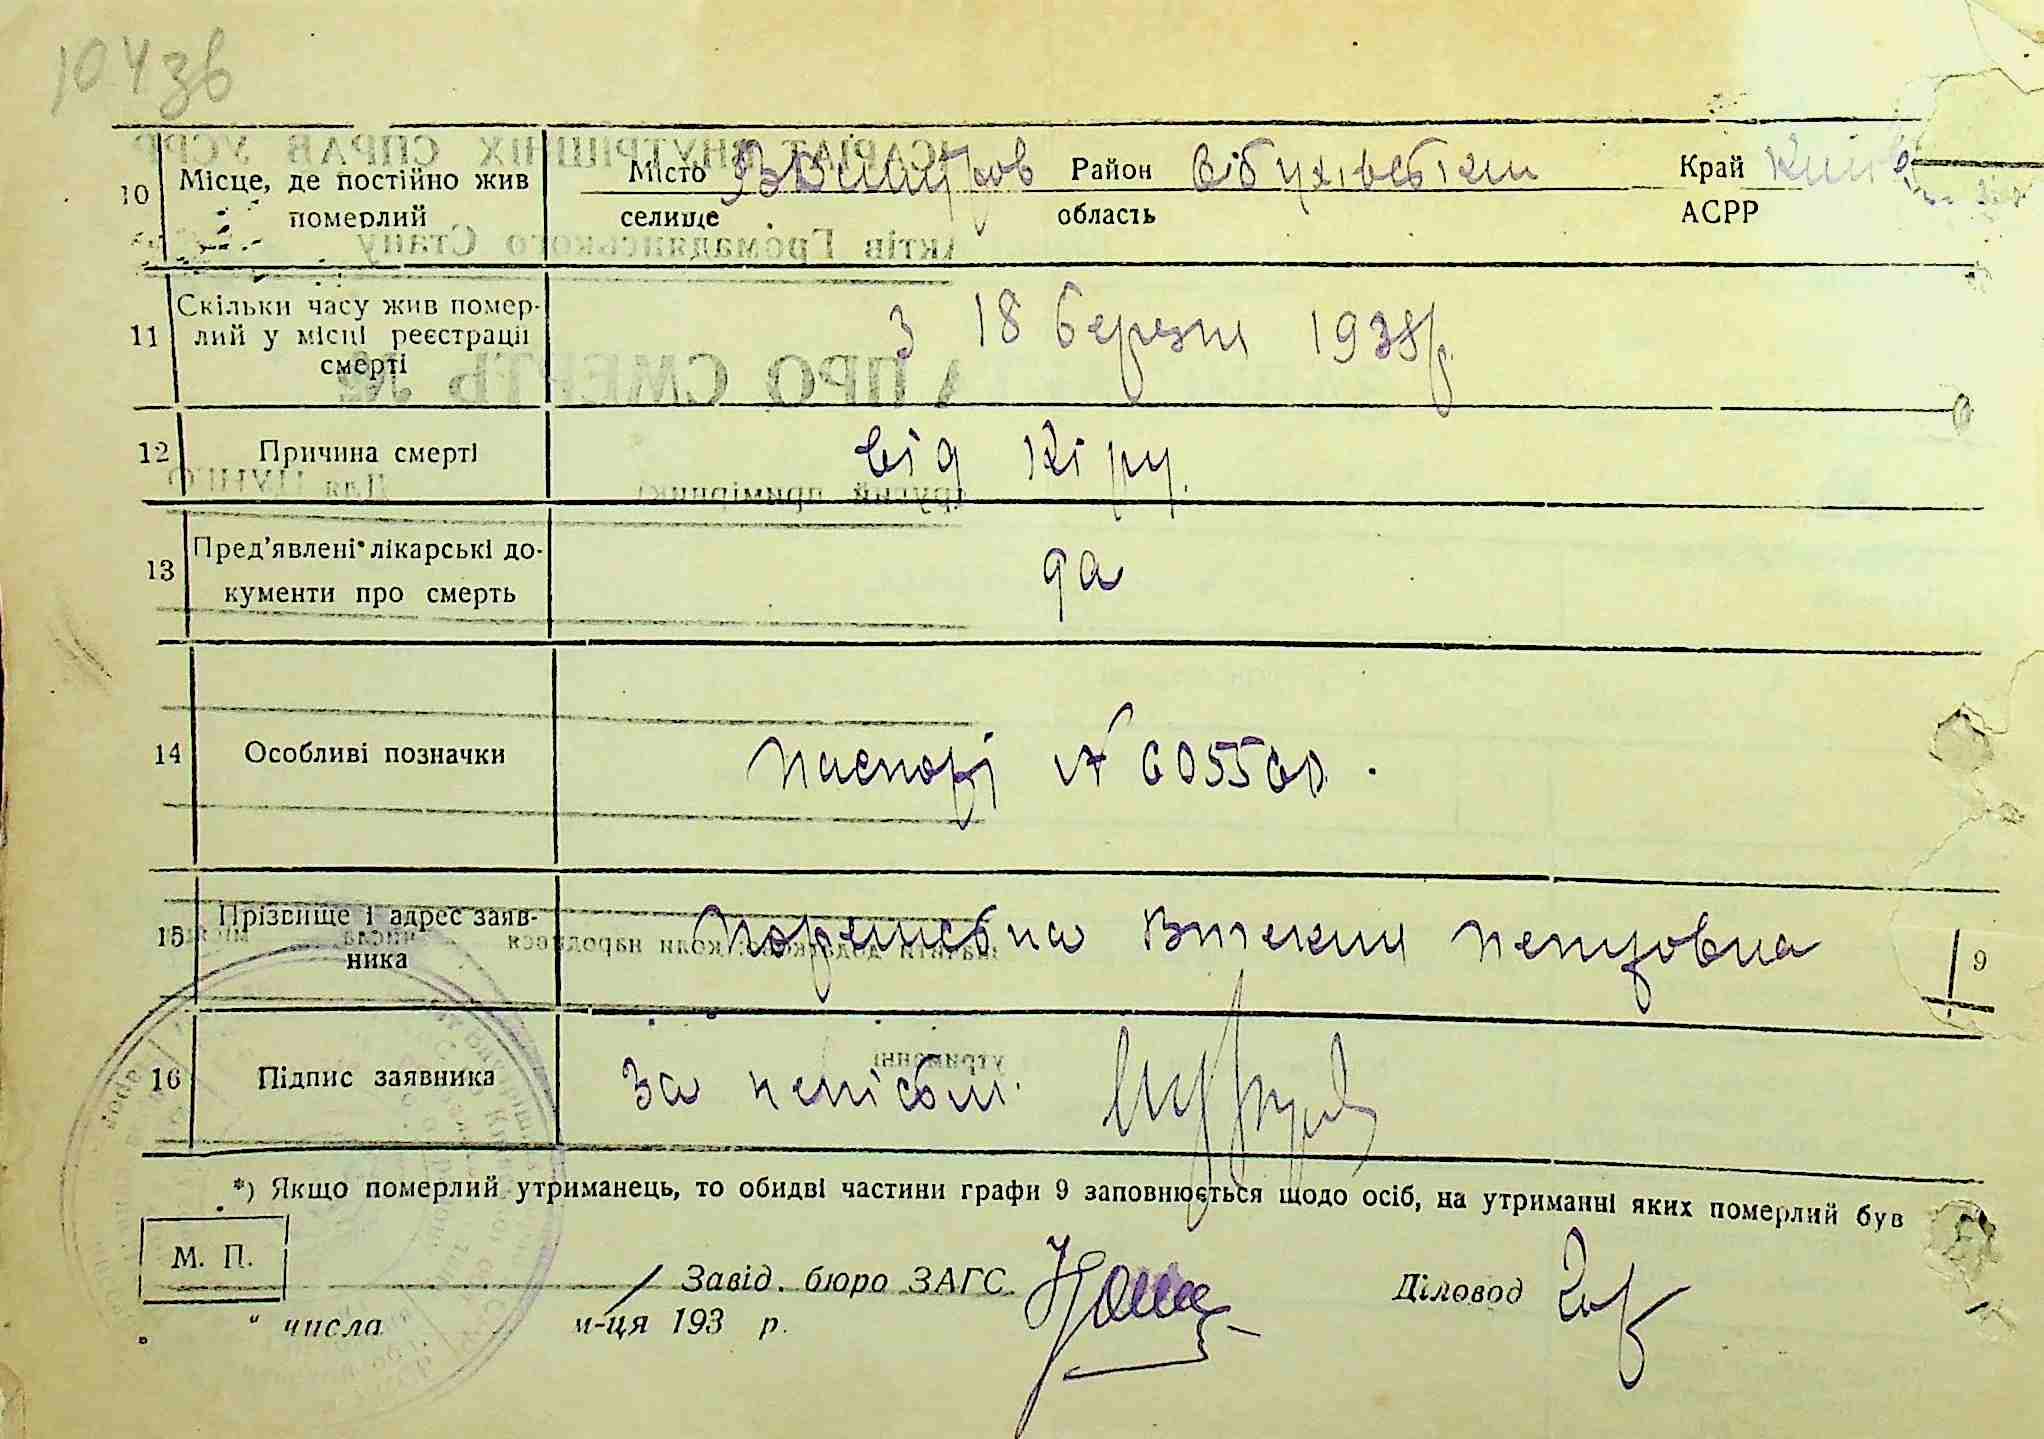 104зв
10 Місце, де постійно жив померлий Місто селище Район область Обухівський Край АСРР Київ
11 Скільки часу жив помер-
лий у місці реєстрації
смерті
з 18 березня 1938р.
12 Причина смерті від кіру.
13 Пред'явлені лікарські до-
кументи про смерть
да
14 Особливі позначки паспорт № 605560.
15 Прізвище і адрес заяв-
ника
Петровна
9
16 Підпис заявника За непісьм.
*) Якщо померлий утриманець, то обидві частини графи 9 заповнюється щодо осіб, на утриманні яких померлий був
М. П.
Завід. бюро ЗАГС Діловод
" числа м-ця 193 р.